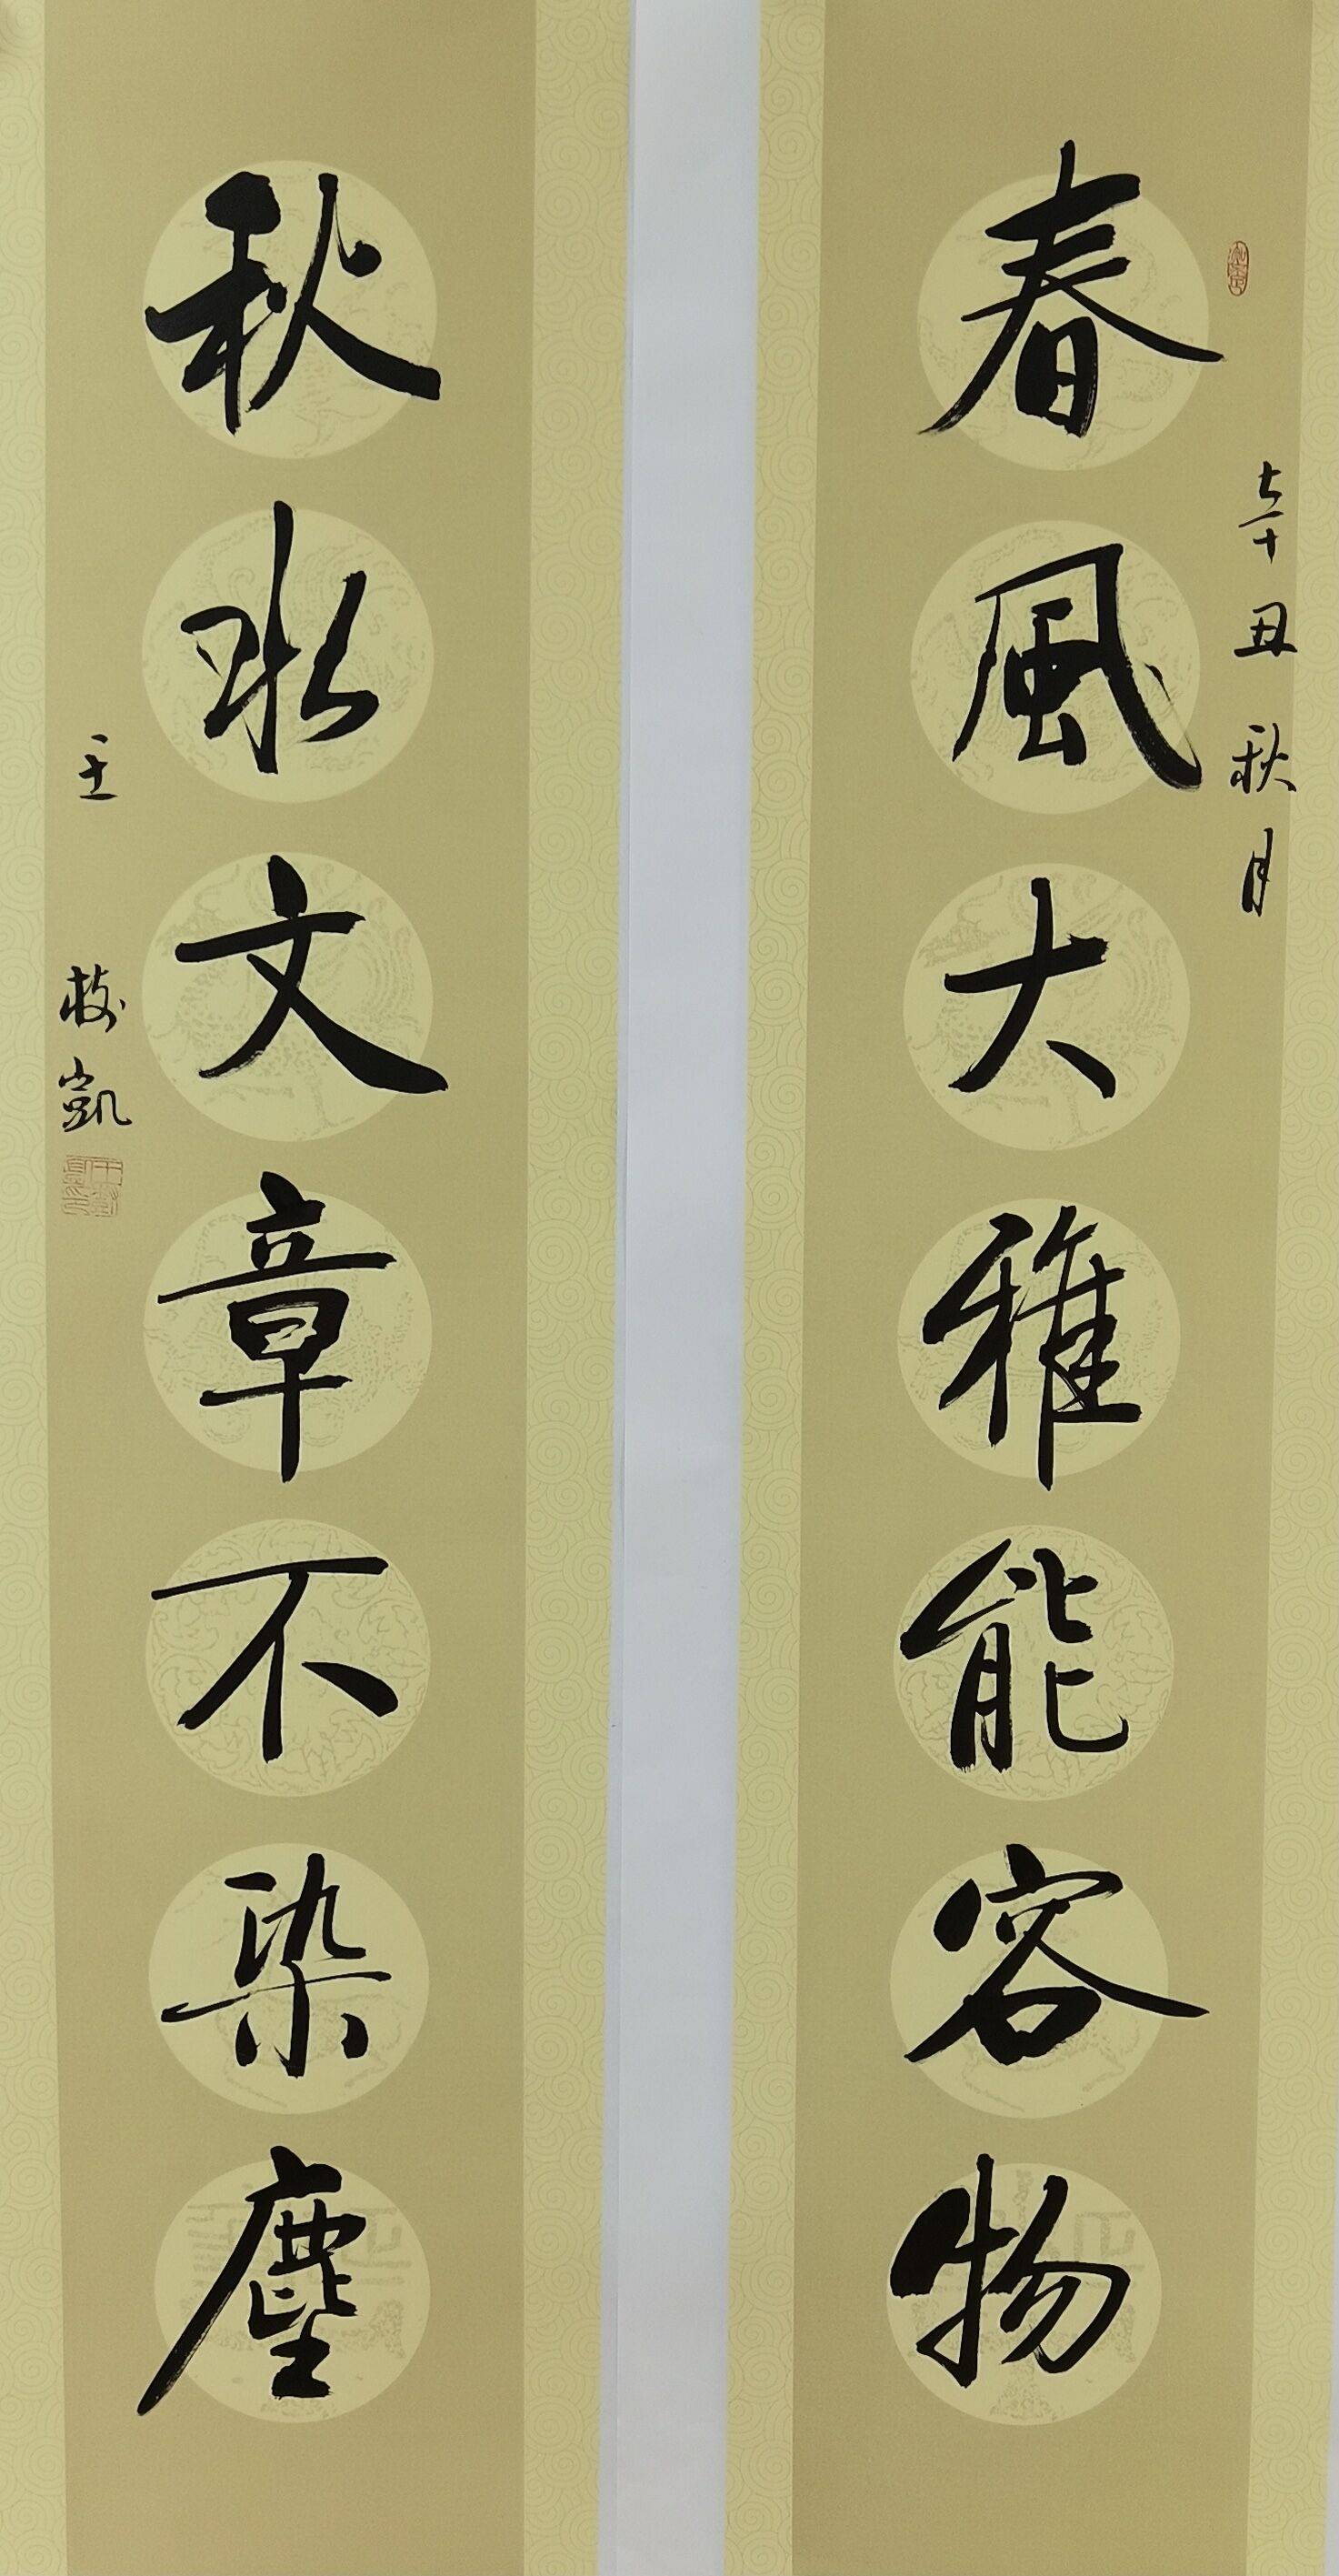 辛丑秋月
春風大雅能容物
秋水文章不染塵
王樹凱